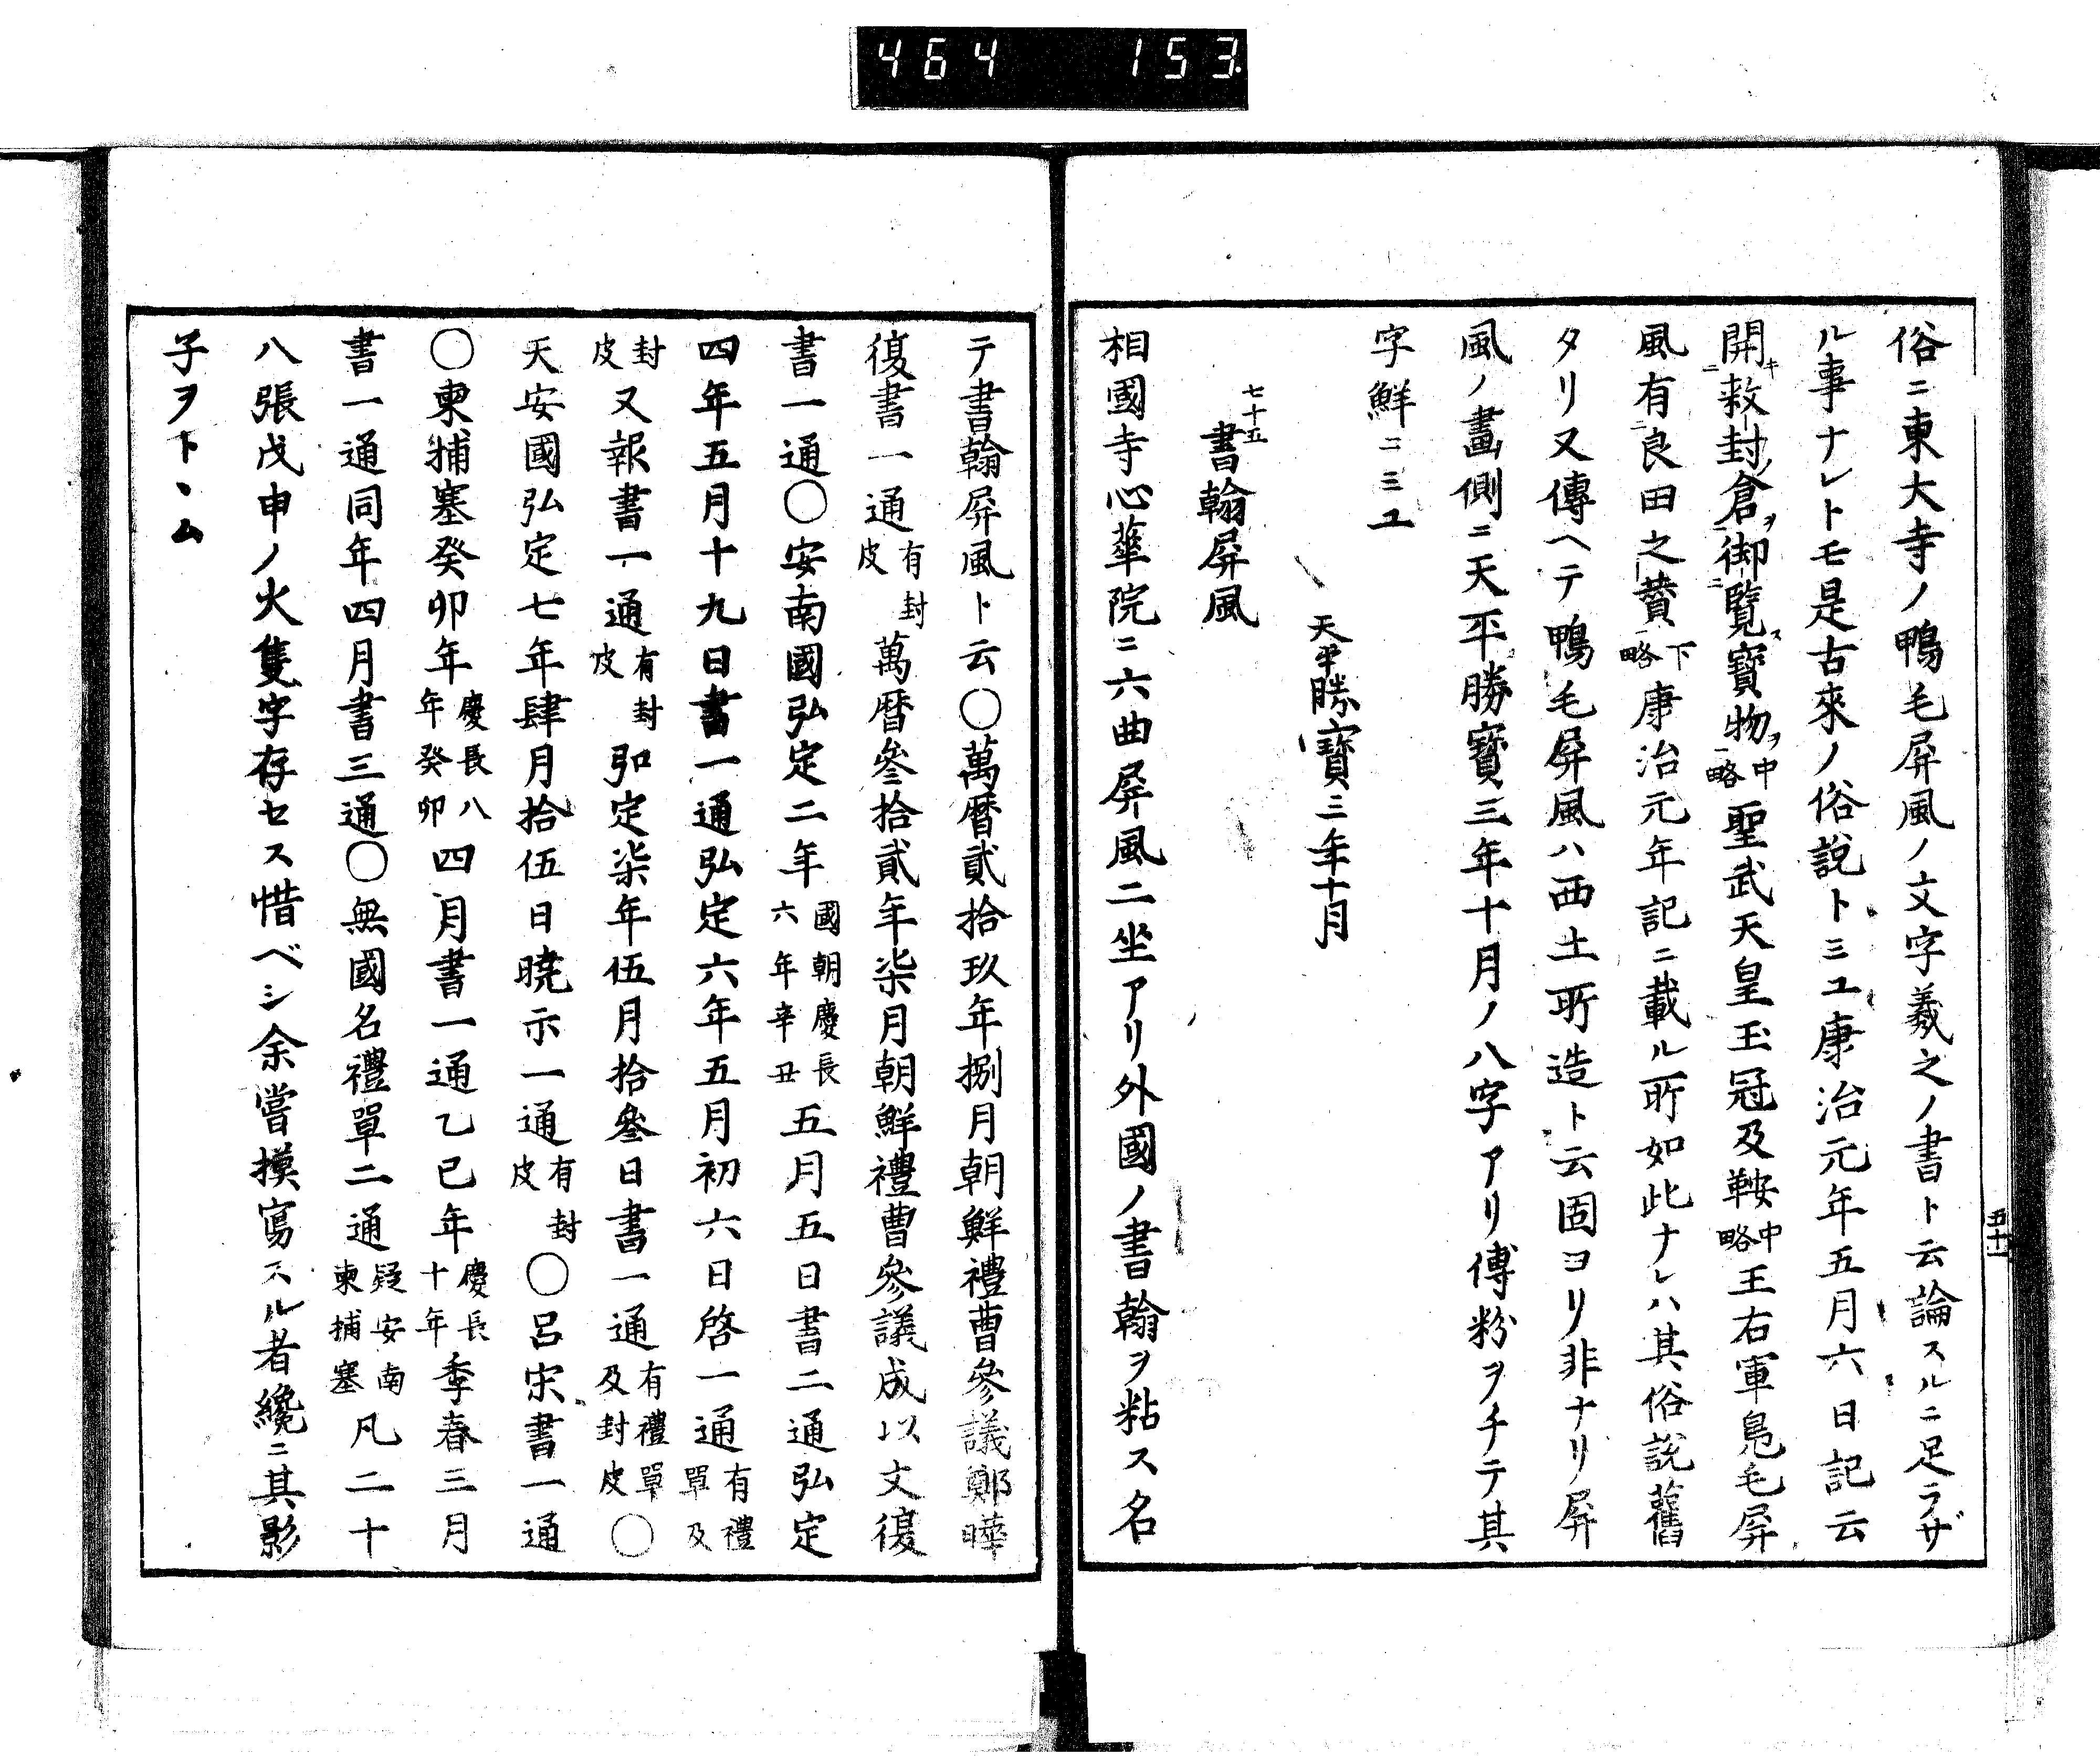 464 153
五十一
俗ニ東大寺ノ鴨毛屏風ノ文字羲之ノ書ト云論スルニ足ラザ
ル事ナレトモ是古來ノ俗説トミユ康治元年五月六日記云
開キ二敕一封ノ倉ヲ一御二覽ス寳物ヲ一中略聖武天皇玉冠及鞍中略王右軍鳬毛屏
風有二良田之賛一下略康治元年記ニ載ル所如此ナレハ其俗説舊
タリ又傳ヘテ鴨毛屏風ハ西土所造ト云固ヨリ非ナリ屏
風ノ畫側ニ天平勝寶三年十月ノ八字アリ傅粉ヲチテ其
字鮮ニミユ
天平勝寶三年十月
七十五
書翰屏風
相國寺心華院ニ六曲屏風二坐アリ外國ノ書翰ヲ粘ス名
テ書翰屏風ト云○萬暦貳拾玖年捌月朝鮮禮曹參議鄭曄
復書一通有封皮萬暦參拾貳年柒月朝鮮禮曹參議成以文復
書一通○安南國弘定二年國朝慶長六年辛丑五月五日書二通弘定
四年五月十九日書一通弘定六年五月初六日啓一通有禮單及
封皮又報書一通有封皮弘定柒年伍月拾參日書一通有禮單及封皮○
天安國弘定七年肆月拾伍日曉示一通有封皮○呂宋書一通
○東捕塞癸卯年慶長八年癸卯四月書一通乙巳年慶長十年季春三月
書一通同年四月書三通○無國名禮單二通疑安南東捕塞凡二十
八張戊申ノ火隻字存セス惜ベシ余嘗摸寫スル者纔ニ其影
子ヲトヽム